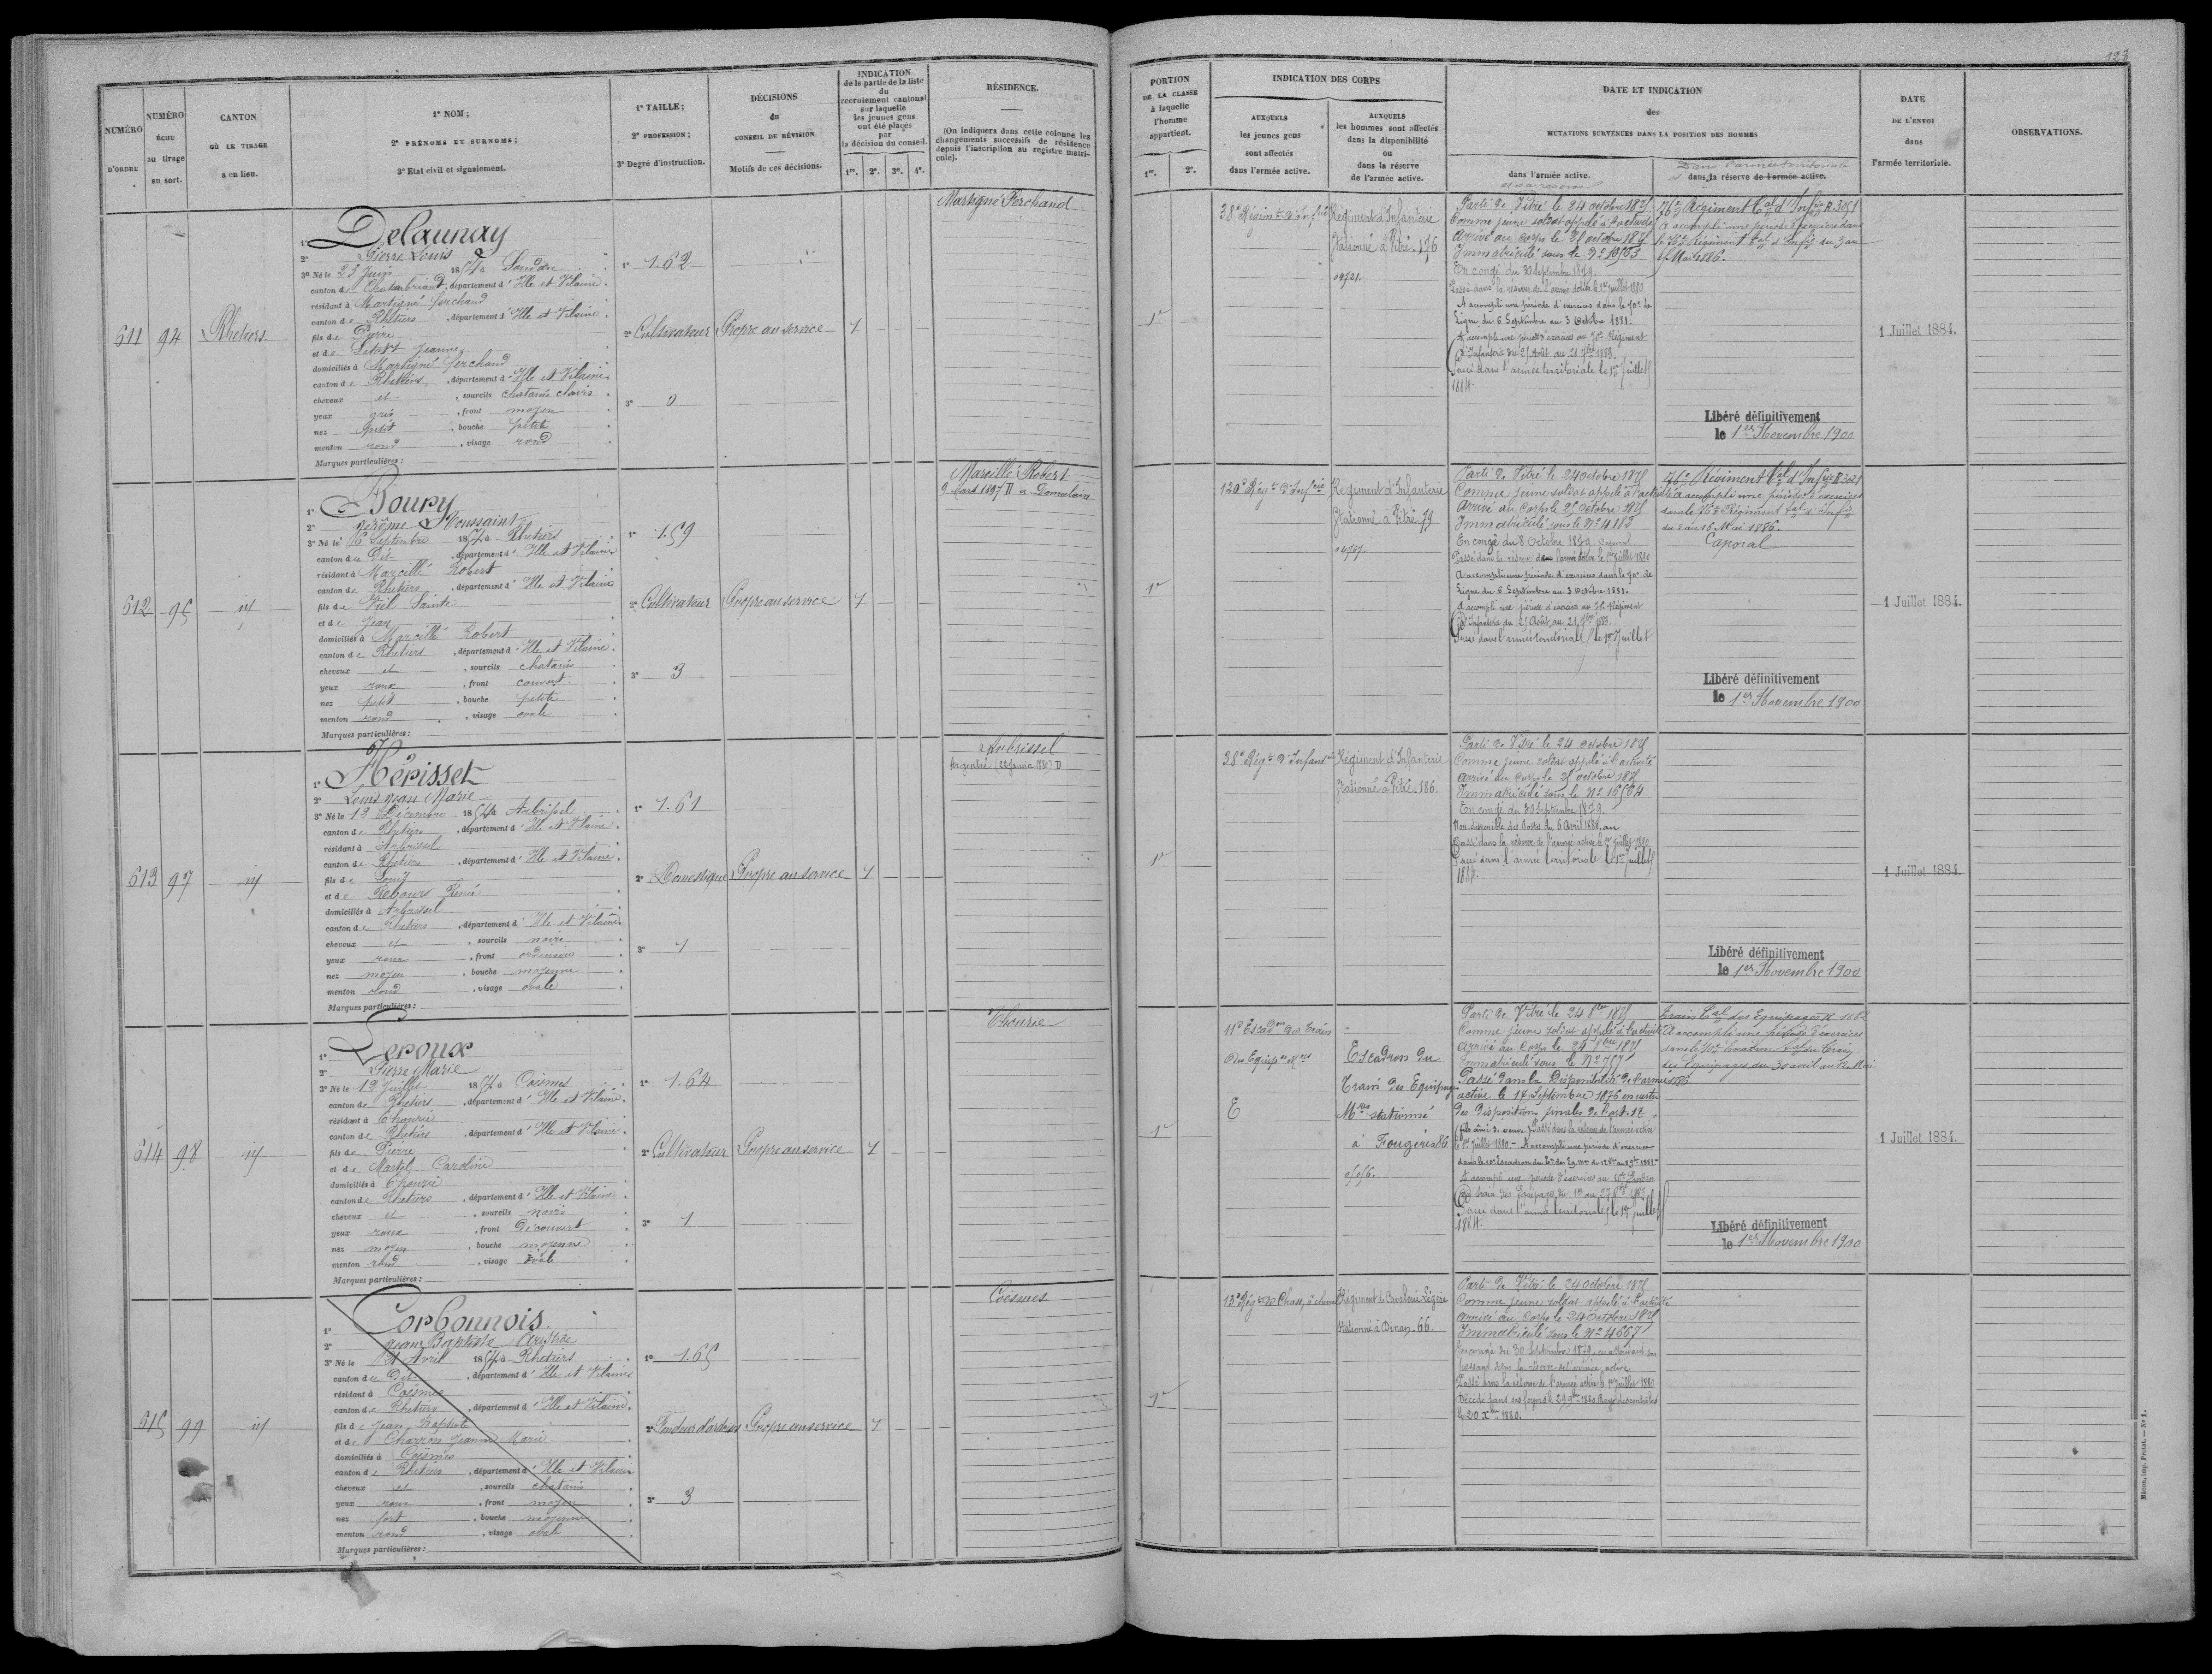 245
123
NUMÉRO D'ORDRE
NUMÉRO ÉCHU au tirage au sort.
CANTON OÙ LE TIRAGE a eu lieu.
1° NOM;
2° PRÉNOMS ET SURNOMS;
3° Etat civil et signalement.
1° TAILLE;
2° PROFESSION;
3° Degré d'instruction.
DÉCISIONS du CONSEIL DE RÉVISION
Motifs de ces décisions.
INDICATION de la partie de la liste du recrutement cantonal sur laquelle les jeunes gens ont été placés par la décision du conseil.
1re. 2e. 3e. 4e.
RÉSIDENCE.
(On indiquera dans cette colonne les changements successifs de résidence depuis l'inscription au registre matricule).
PORTION DE LA CLASSE à laquelle l'homme appartient.
1re. 2e.
INDICATION DES CORPS
AUXQUELS les jeunes gens sont affectés dans l'armée active.
AUXQUELS les hommes sont affectés dans la disponibilité ou dans la réserve de l'armée active.
DATE ET INDICATION des MUTATIONS SURVENUES DANS LA POSITION DES HOMMES
dans l'armée active.
et sa réserve
Dans l'armée territoriale
et dans sa réserve de l'armée active.
DATE DE L'ENVOI dans l'armée territoriale.
OBSERVATIONS.
611
94
Rhetiers.
1° Delaunay
2° Pierre Louis
3° Né le 23 Juin 1854 à Soudan
canton de Chateaubriand, département d'Ille et Vilaine.
résidant à Martigné ferchaud
canton de Rhétiers, département d'Ille et Vilaine.
fils de Pierre
et de Jeanne
domiciliés à Martigné ferchaud
canton de Rhetiers, département d'Ille et Vilaine.
cheveux et, sourcils chatains clairs.
yeux gris, front moyen
nez petit, bouche petite
menton rond, visage rond
Marques particulières:
1° 1.62
2° Cultivateur
3° 0
Propre au service
1
Martigné Ferchaud
1re
38e Régim[t] d'Infrie
Régiment d'Infanterie
Stationné à Vitré. 176
Parti de Vitré le 24 octobre 1875
Comme jeune soldat appelé à l'activité
Arrivé au Corps le 25 octobre 1875
Immatriculé sous le N° 16563
En congé du 30 Septembre 1879.
Passé dans la réserve de l'armée active le 1er juillet 1880
A accompli une période d'exercices dans le 70e de
Ligne du 6 Septembre au 3 Octobre 1881.
A accompli une période d'exercices au 70e Régiment
d'Infanterie du 25 Août au 21 7bre 1883.
Passé dans l'armée territoriale le 1er Juillet
1884.
76e Régiment tal d'Infie
A accompli une période d'exercices dans
le 76e Régiment tal d'Infie du 3 au
15 Mai 1886.
Libéré définitivement
le 1er Novembre 1900
1 Juillet 1884.
612
95
id
1° Boury
2° Jérôme Toussaint
3° Né le 6 Septembre 1854 à Rhetiers
canton du Dit, département d'Ille et Vilaine
résidant à Marcillé Robert
canton de Rhetiers, département d'Ille et Vilaine
fils de Viel Sainte
et de Jean
domiciliés à Marcillé Robert
canton de Rhetiers, département d'Ille et Vilaine.
cheveux et, sourcils chatains
yeux roux, front couvert
nez petit, bouche petite
menton rond, visage ovale
Marques particulières:
1° 1.59
2° Cultivateur
3° 3
Propre au service
1
Marcillé Robert
9 Mars 1897 D a Domalain
1re
120e Régt d'Infrie
Régiment d'Infanterie
Stationné à Vitré. 79
Parti de Vitré le 24 octobre 1875
Comme jeune soldat appelé à l'activité
Arrivé au Corps le 25 octobre 1875
Immatriculé sous le N° 4183
En congé du 8 Octobre 1879. Caporal
Passé dans la réserve de l'armée active le 1er juillet 1880
A accompli une période d'exercices dans le 70e de
Ligne du 6 Septembre au 3 Octobre 1881.
A accompli une période d'exercices au 70e Régiment
d'Infanterie du 25 Août au 21 7bre 1883.
Passé dans l'armée territoriale le 1er Juillet
76e Régiment tal d'Infie
A accompli une période d'exercices
dans le 76e Régiment tal d'Infie
du 3 au 15 Mai 1886.
Caporal
Libéré définitivement
le 1er Novembre 1900
1 Juillet 1884.
613
97
id
1° Hérisset
2° Louis Jean Marie
3° Né le 13 Décembre 1854 à Arbrissel
canton de Rhetiers, département d'Ille et Vilaine.
résidant à Arbrissel
canton de Rhetiers, département d'Ille et Vilaine.
fils de Louis
et de Rebours Renée
domiciliés à Arbrissel
canton de Rhetiers, département d'Ille et Vilaine.
cheveux et, sourcils noirs
yeux roux, front ordinaire
nez moyen, bouche moyenne
menton rond, visage ovale
Marques particulières:
1° 1.61
2° Domestique
3° 1
Propre au service
1
Arbrissel
Argentré (22 Janvier 1880) D
1re
38e Régt d'Infanterie
Régiment d'Infanterie
Stationné à Vitré. 186.
Parti de Vitré le 24 octobre 1875
Comme jeune soldat appelé à l'activité
Arrivé au Corps le 25 octobre 1875
Immatriculé sous le N° 16564
En congé du 30 Septembre 1879.
Non disponible des Postes du 6 Avril 1880 au
Passé dans la réserve de l'armée active le 1er juillet 1880
Passé dans l'armée territoriale le 1er Juillet
1884.
Libéré définitivement
le 1er Novembre 1900
1 Juillet 1884.
614
98
id
1° Leroux
2° Pierre Marie
3° Né le 13 Juillet 1854 à Coësmes
canton de Rhetiers, département d'Ille et Vilaine.
résidant à Thourie
canton de Rhetiers, département d'Ille et Vilaine.
fils de Pierre
et de Martel Caroline
domiciliés à Thourie
canton de Rhetiers, département d'Ille et Vilaine.
cheveux et, sourcils noirs
yeux roux, front Découvert
nez moyen, bouche moyenne
menton rond, visage ovale
Marques particulières:
1° 1.64
2° Cultivateur
3° 1
Propre au service
1
Thourie
1re
11e Escadron du Train
des Equipages Mres
E
Escadron du
Train des Equipages
Mres stationné
à Fougères 86.
Parti de Vitré le 24 8bre 1875
Comme jeune soldat appelé à l'activité
Arrivé au Corps le 25 8bre 1875
Immatriculé sous le N° 757
Passé dans la Disponibilité de l'armée
active le 17 Septembre 1876 en vertu
des Dispositions finales de l'art. 17
(fils aîné de veuve) Passé dans la réserve de l'armée active
le 1er Juillet 1880. A accompli une période d'exercices
dans le 10e Escadron du
A accompli une période d'exercices au 10e Escadron
du train des Equipages du 1er au 27 8bre 1883
Passé dans l'armée territoriale le 1er Juillet
1884.
Train tal des Equipages
A accompli une période d'exercices
dans le 10e Escadron tal du Train
des Equipages du 30 avril au 12 Mai
1886.
Libéré définitivement
le 1er Novembre 1900
1 Juillet 1884.
615
99
id
1° Corbonnois.
2° Jean Baptiste Aristide
3° Né le 21 Avril 1854 à Rhetiers
canton du Dit, département d'Ille et Vilaine
résidant à Coësmes
canton de Rhetiers, département d'Ille et Vilaine.
fils de Jean Baptiste
et de Charron Jeanne Marie
domiciliés à Coësmes
canton de Rhetiers, département d'Ille et Vilaine
cheveux et, sourcils chatains
yeux roux, front moyen
nez fort, bouche moyenne
menton rond, visage ovale
Marques particulières:
1° 1.65
2° Fendeur d'ardoises
3° 3
Propre au service
1
Coësmes
1re
13e Régt de Chass. à cheval
Régiment de Cavalerie Légère
Stationné à Dinan. 66.
Parti de Vitré le 24 octobre 1875
Comme jeune soldat appelé à l'activité
Arrivé au Corps le 24 Octobre 1875
Immatriculé sous le N° 4667
En congé du 30 Septembre 1879, en attendant son
passage dans la réserve de l'armée active
Passé dans la réserve de l'armée active le 1er juillet 1880
Décédé dans ses foyers le 29 9bre 1880 Rayé des contrôles
le 20 Xbre 1880.
Macon, imp. Protat. — N° 1.